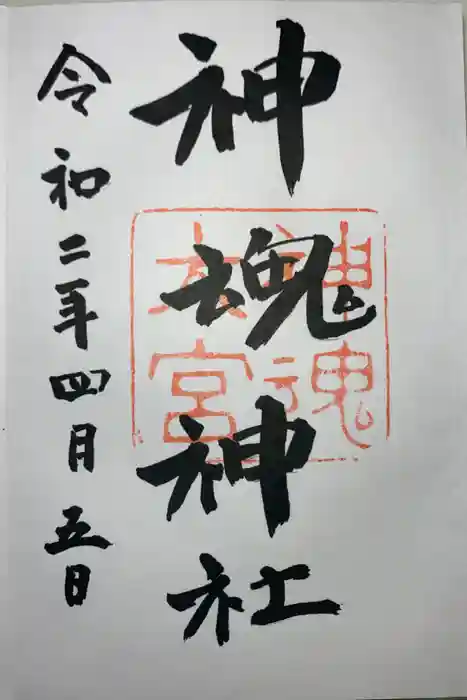 神魂神社
令和二年四月五日
神魂
大宮